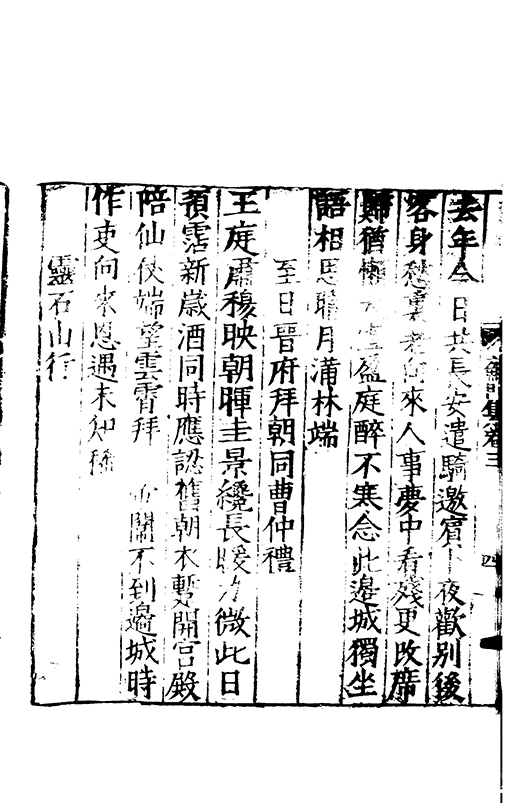 去年今日共長安遣騎邀賓卜夜歡別後
客身愁裏老向來人事夢中看殘更改席
歸猶懶大雪盈庭醉不寒念此邊城獨坐
語相思曉月滿林端
至日晉府拜朝同曹仲禮
王庭肅穆映朝暉圭景纔長暖力微此日
預霑新歲酒同時應認舊朝衣暫開宮殿
陪仙仗端望雲霄拜 闕不到邊城時
作吏向來恩遇未知稀
靈石山行
集卷三
四